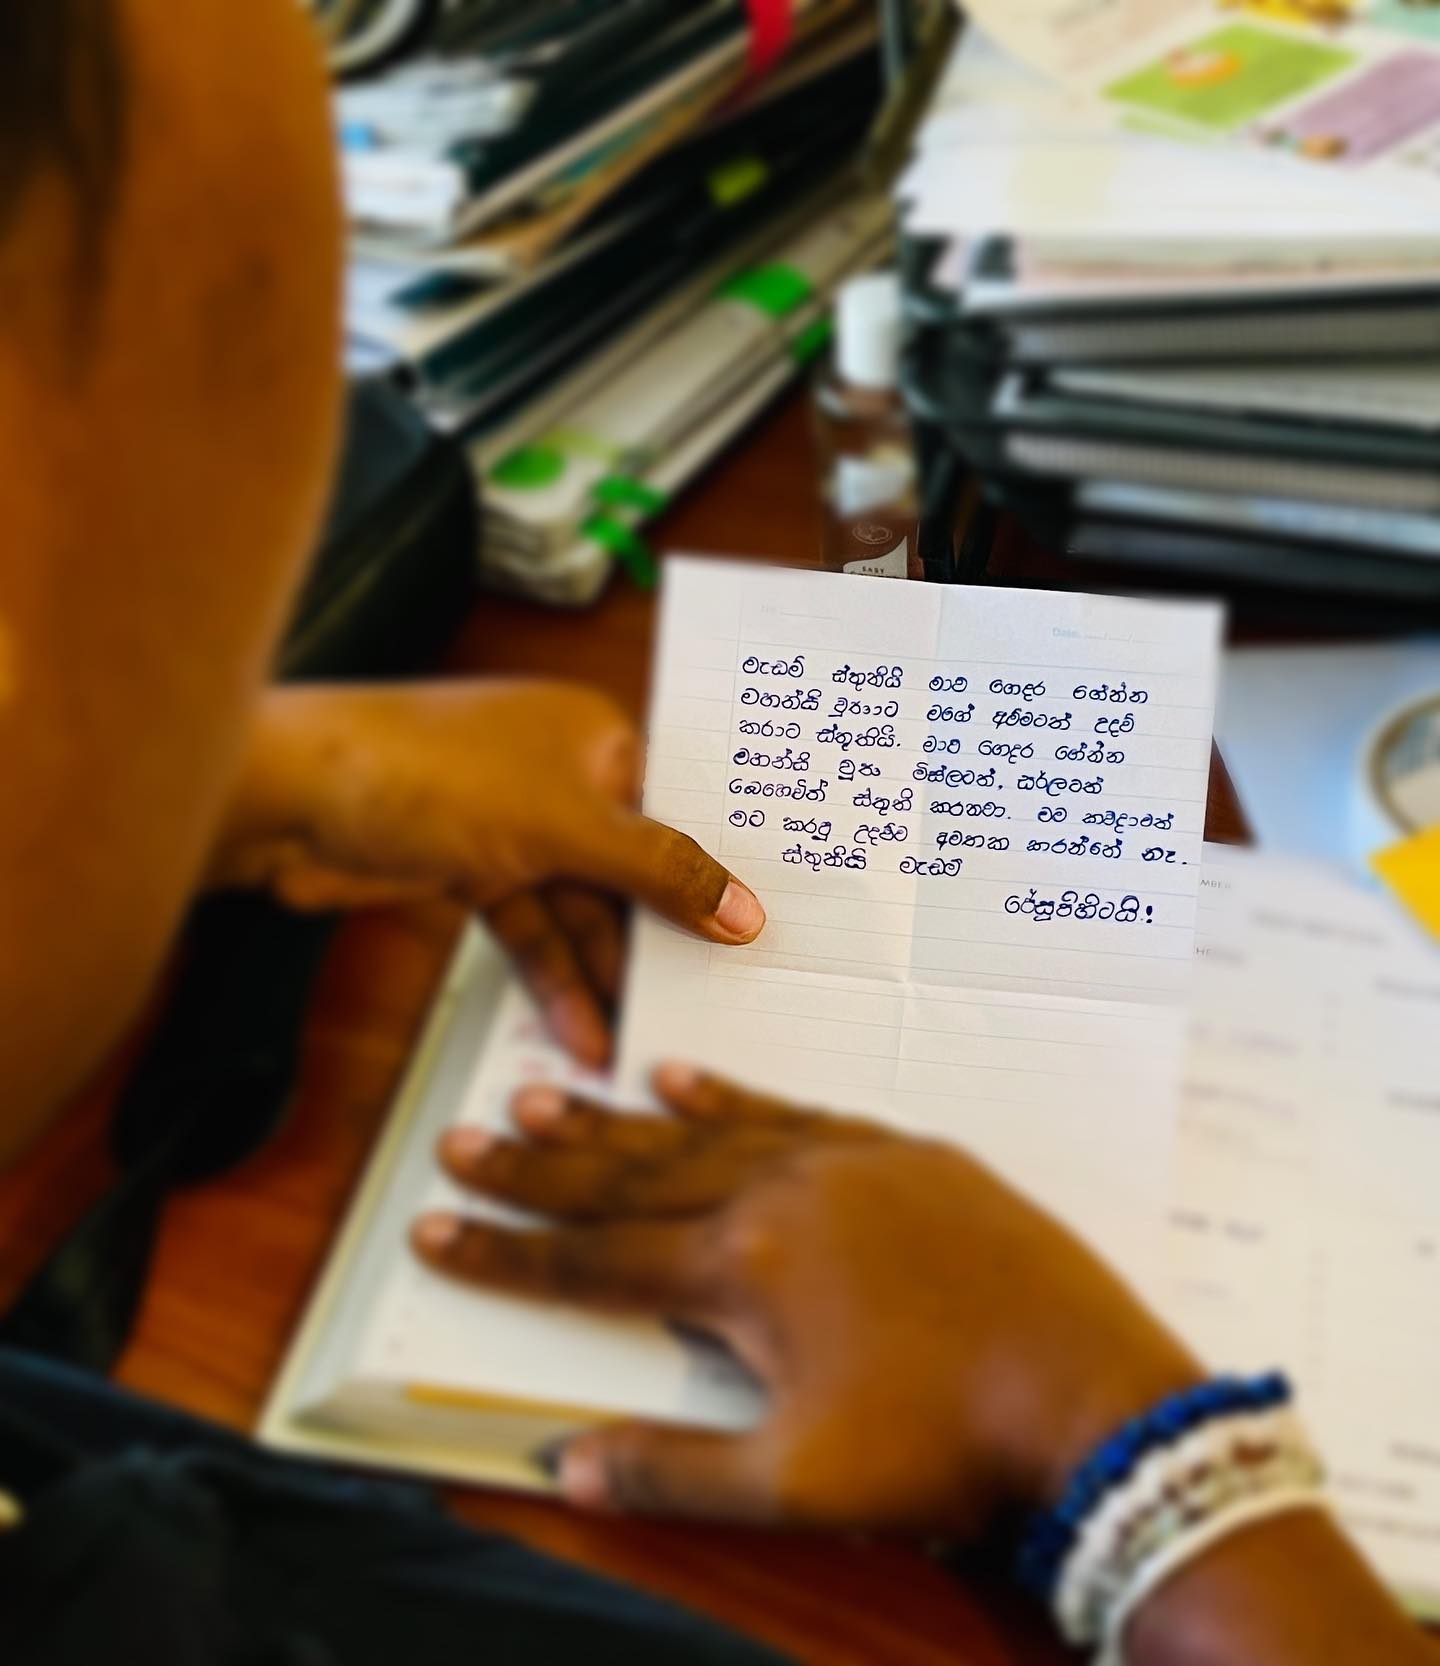 මැඩම් ස්තූතියි මාව ගෙදර ගේන්න
මහන්සි වුනාට මගේ අම්මටත් උදව්
කරාට ස්තූතියි. මාව ගෙදර ගේන්න
මහන්සි වුන මිස්ලටත්, සර්ලටත්
බෙහෙවින් ස්තූති කරනවා. මම කවදාවත්
මට කරපු උදව්ව අමතක කරන්නේ නෑ.
ස්තූතියි මැඩම්
ජේසුපිහිටයි!
Date:
EASY
MBER